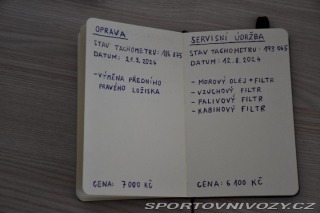 OPRAVA
STAV TACHOMETRU: 186 875
DATUM: 21.5.2024
-VÝMĚNA PŘEDNÍHO
PRAVÉHO LOŽISKA
CENA: 7 000 KČ
SERVISNÍ ÚDRŽBA
STAV TACHOMETRU: 193 065
DATUM: 12.8.2024
- MOROVÝ OLEJ + FILTR
- VZUCHOVÝ FILTR
- PALIVOVÝ FILTR
- KABINOVÝ FILTR
CENA: 6 100 KČ
SPORTOVNIVOZY.CZ